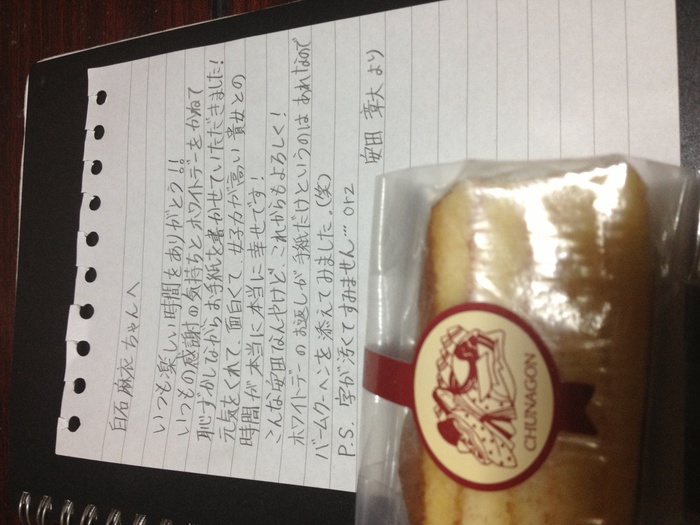 白石 麻衣 ちゃんへ
いつも楽しい時間をありがとう!!
いつもの感謝の気持ちとホワイトデーをかねて
恥ずかしながらお手紙を書かせていただきました!
元気をくれて、面白くて、女子力が高い貴女との
時間が本当に本当に幸せです!
こんな安田なんやけど、これからもよろしく!
ホワイトデーのお返しが手紙だけというのはあれなので
バームクーヘンを添えてみました。(笑)
P.S. 字が汚くてすみません… orz
安田 章大 より
CHUNAGON